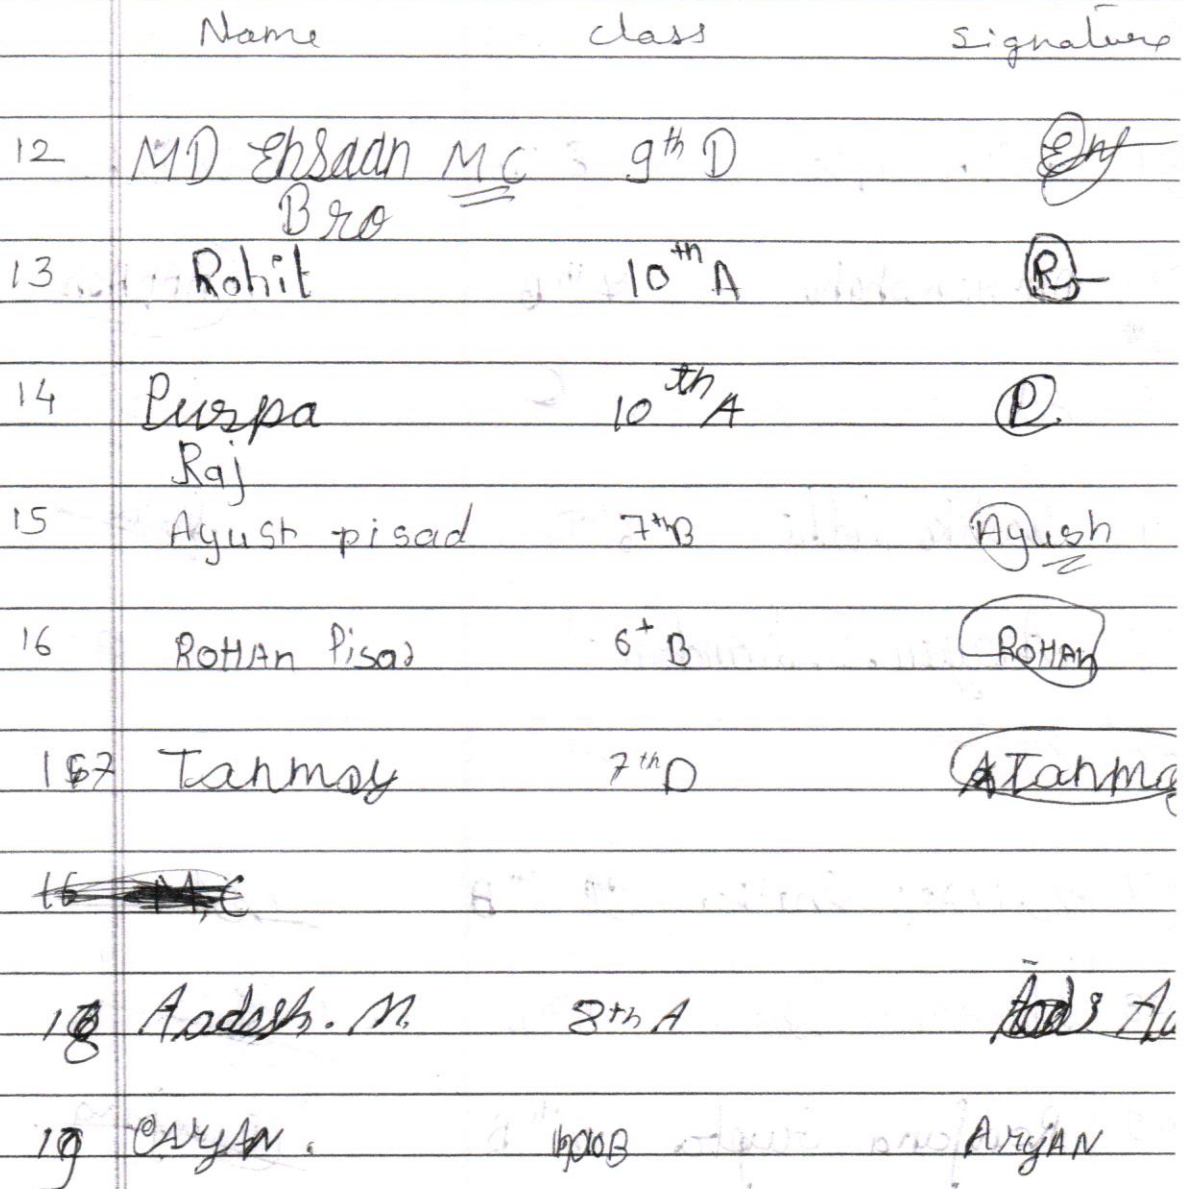 Name class Signature
12 MD Ehsaan MC 9th D
Bro
13 Rohit 10th A R
14 Purpa 10th A P
Raj
15 Ayush pisad 7thB Ayush
16 ROHAn Pisad 6+ B ROHAn
17 Tanmay 7th D Tanma
16 M,C
18 Aadesh. M. 8th A
19 ARYAN. ARYAN